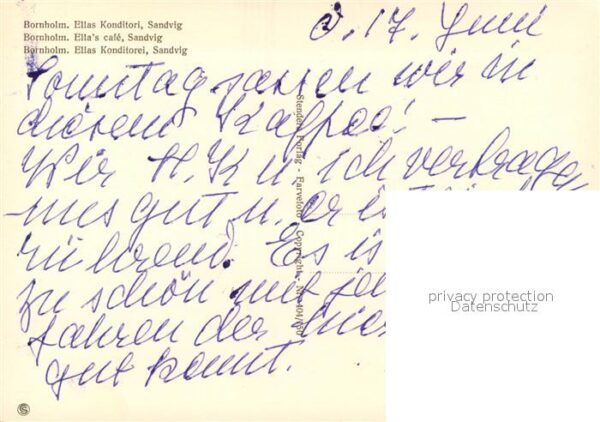 Bornholm. Ellas Konditori, Sandvig
Bornholm. Ella's café, Sandvig
Bornholm. Ellas Konditorei, Sandvig
17. Juni
Sonntag sassen wir in
diesem Kaffee! —
Wir H. K u. ich vertragen
uns gut u. er ist
rührend. Es is
zu schön mit je
fahren der hier
gut kennt.
Stenders Forlag - Farvefoto - Copyright - Nr. 404/50
privacy protection
Datenschutz